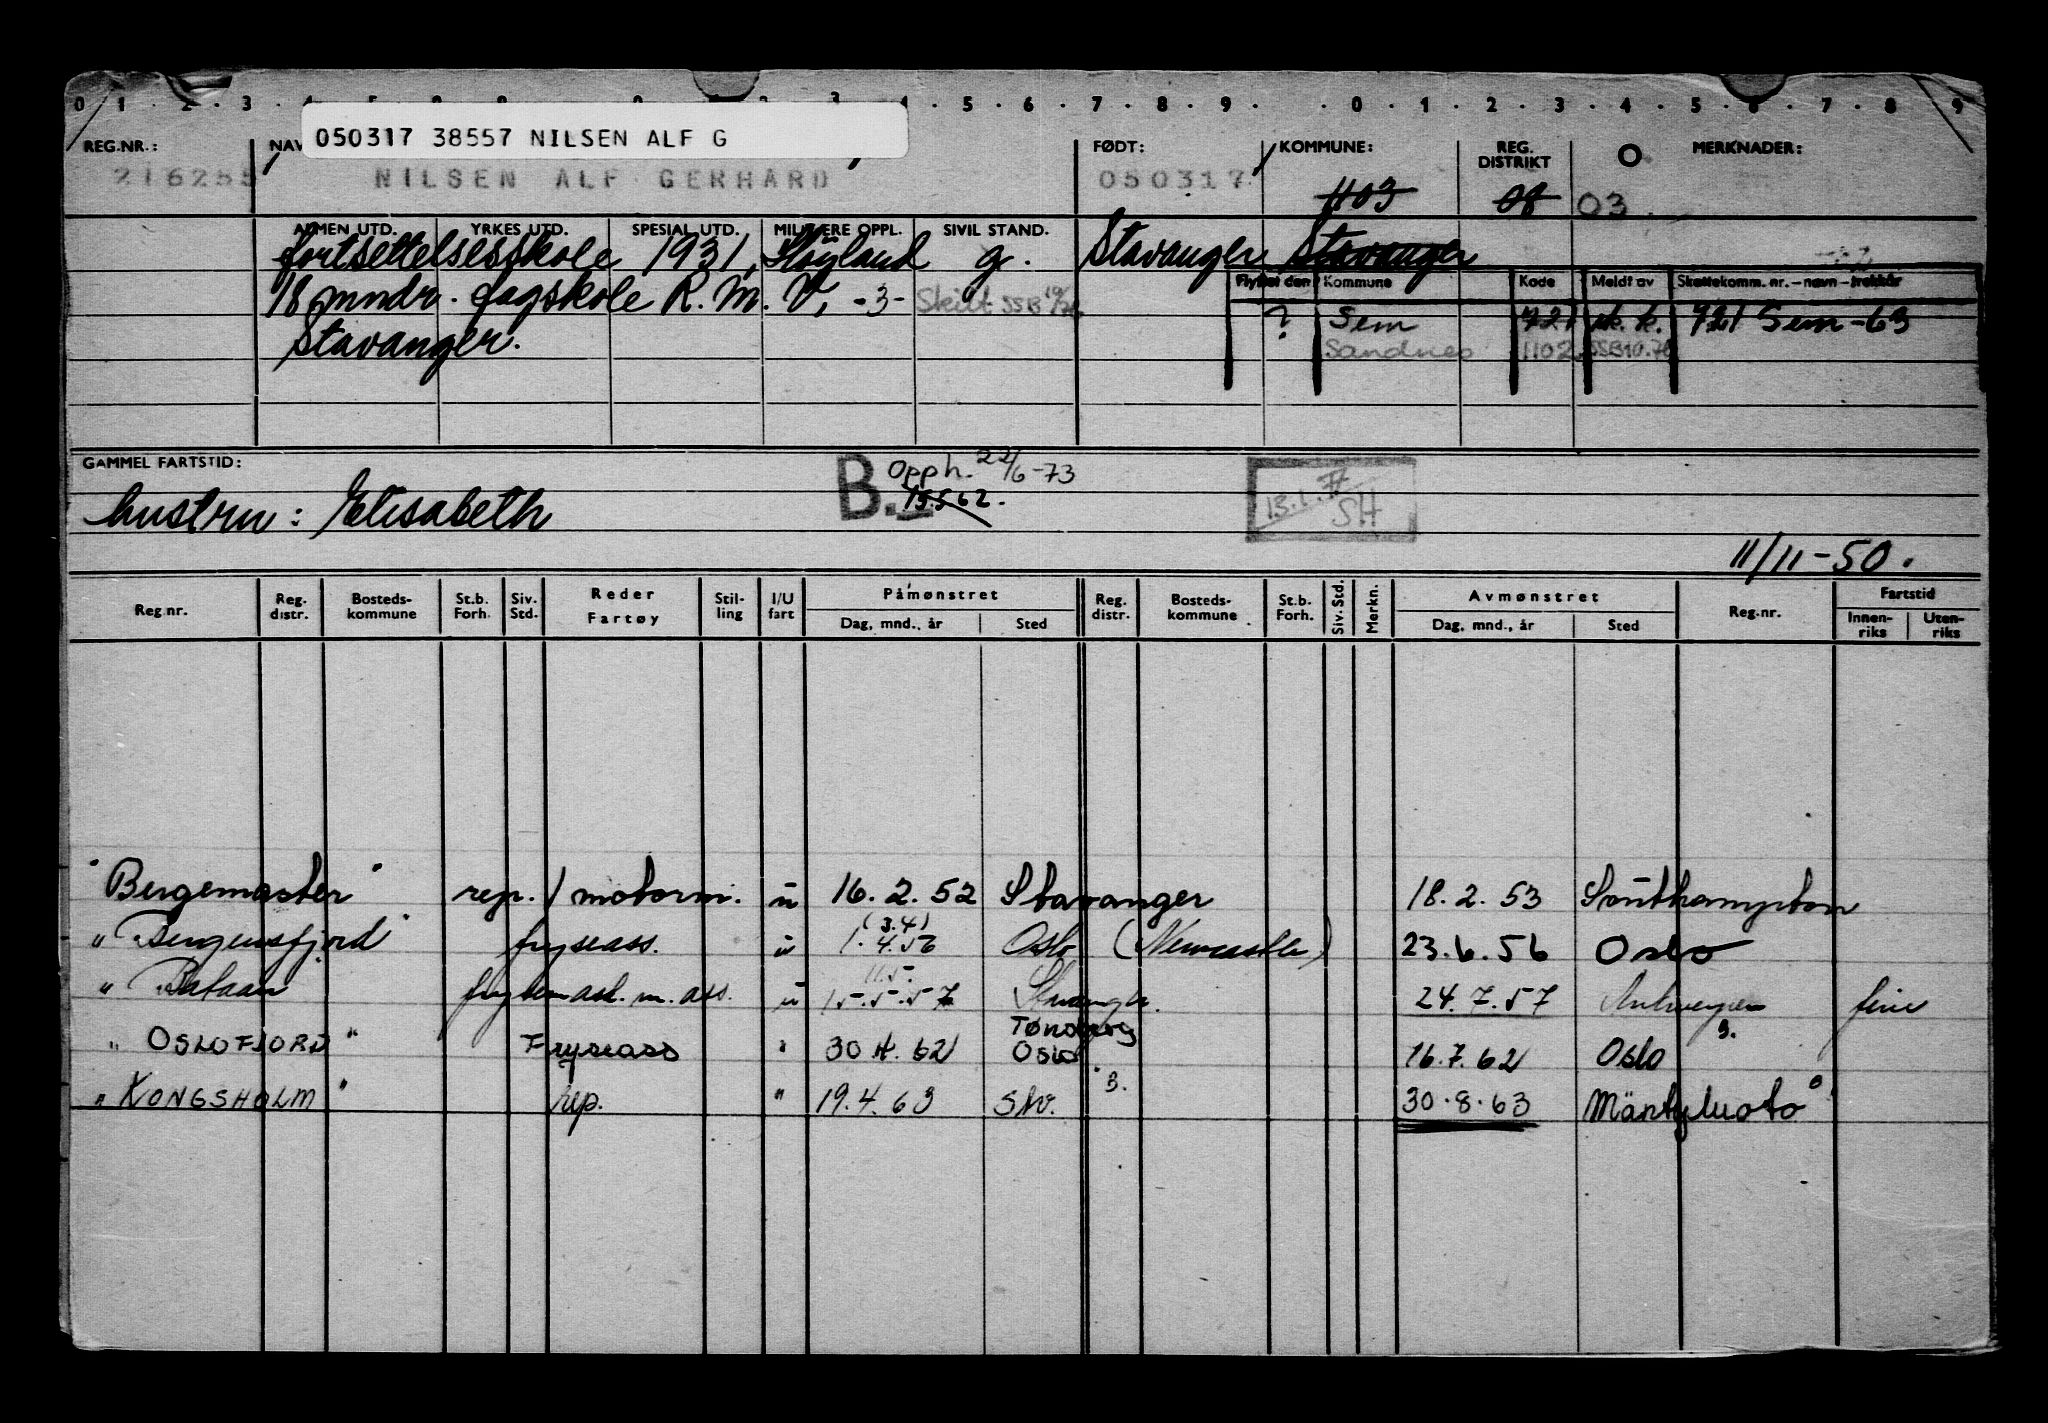 0 1 . 2 . 3 . 4 . 5 . 6 . 7 . 8 . 9 . . 0 . 1 . 2 . 3 . 4 . 5 . 6 . 7 . 8 . 9
050317 38557 NILSEN ALF G
REG.NR.: NAV FØDT: KOMMUNE: REG. DISTRIKT O MERKNADER:
216255 NILSEN ALF GERHARD 050317 1103 08 03
ALMEN UTD. YRKES UTD. SPESIAL UTD. MILITÆRE OPPL. SIVIL STAND.
fortsettelsesskole 1931, Høyland g. Stavanger Stavanger
Flyttet den Kommune Kode Meldt av Skattekomm. nr.-navn-trekkår
18 mndr. fagskole R. M. V. -3- Skilt SSB 10/70
? Sem 721 sk. k. 721 Sem -63
Stavanger. Sandnes 1102 SSB 10.70
GAMMEL FARTSTID:
B. Opph. 22/6-73
15.5.62.
13.1.77
SH
hustru: Elisabeth
11/11-50.
Reg.nr. Reg. distr. Bosteds- kommune St.b. Forh. Siv. Std. Reder Fartøy Stil- ling I/U fart Påmønstret Dag, mnd., år Sted Reg. distr. Bosteds- kommune St.b. Forh. Siv. Std. Merkn. Avmønstret Dag, mnd., år Sted Reg.nr. Fartstid Innen- riks Uten- riks
"Bergemaster" rep. / motorm. u 16.2.52 Stavanger 18.2.53 Southampton
(3.4)
"Bergensfjord" fryseass. u 1.4.56 Oslo (Newcastle) 23.6.56 Oslo
11.5.
"Bataan frysemask.m.ass. u 15.5.57 Stavanger. 24.7.57 Antwerpen ferie
Tønsberg
"OSLOFJORD" Fryseass " 30.4.62 Oslo 16.7.62 Oslo 3.
"KONGSHOLM" rep. " 19.4.63 Stv. 3. 30.8.63 Mäntyluoto